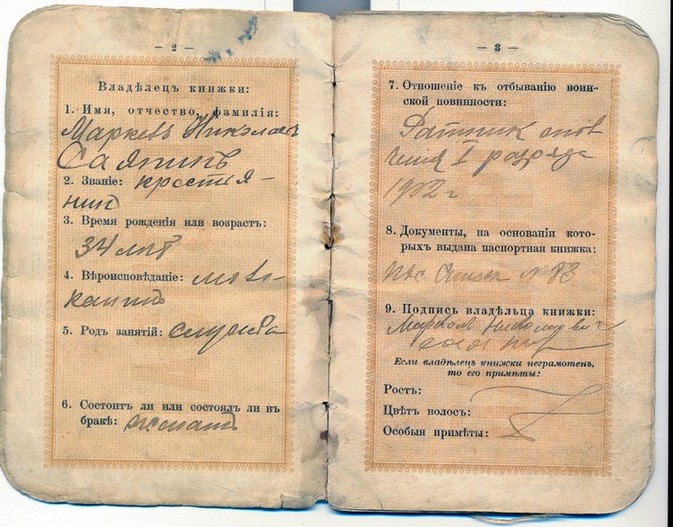 — 2 —
Владѣлецъ книжки:
1. Имя, отчество, фамилія:
Николаев
Саяпинъ
2. Званіе: крестья-
нинъ
3. Время рожденія или возрастъ:
34 лѣтъ
4. Вѣроисповѣданіе: моло-
канинъ
5. Родъ занятій: служба
6. Состоитъ ли или состоялъ ли въ
бракѣ: женатъ
— 3 —
7. Отношеніе къ отбыванію воин-
ской повинности:
Ратник опол
ченія I разряда
1902 г
8. Документы, на основаніи кото-
рыхъ выдана паспортная книжка:
№ 83
9. Подпись владѣльца книжки:
Если владѣлецъ книжки неграмотенъ,
то его примѣты:
Ростъ:
Цвѣтъ волосъ:
Особыя примѣты: